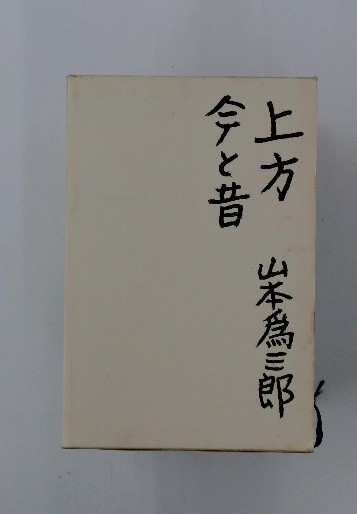 上方 山本爲三郎
今と昔